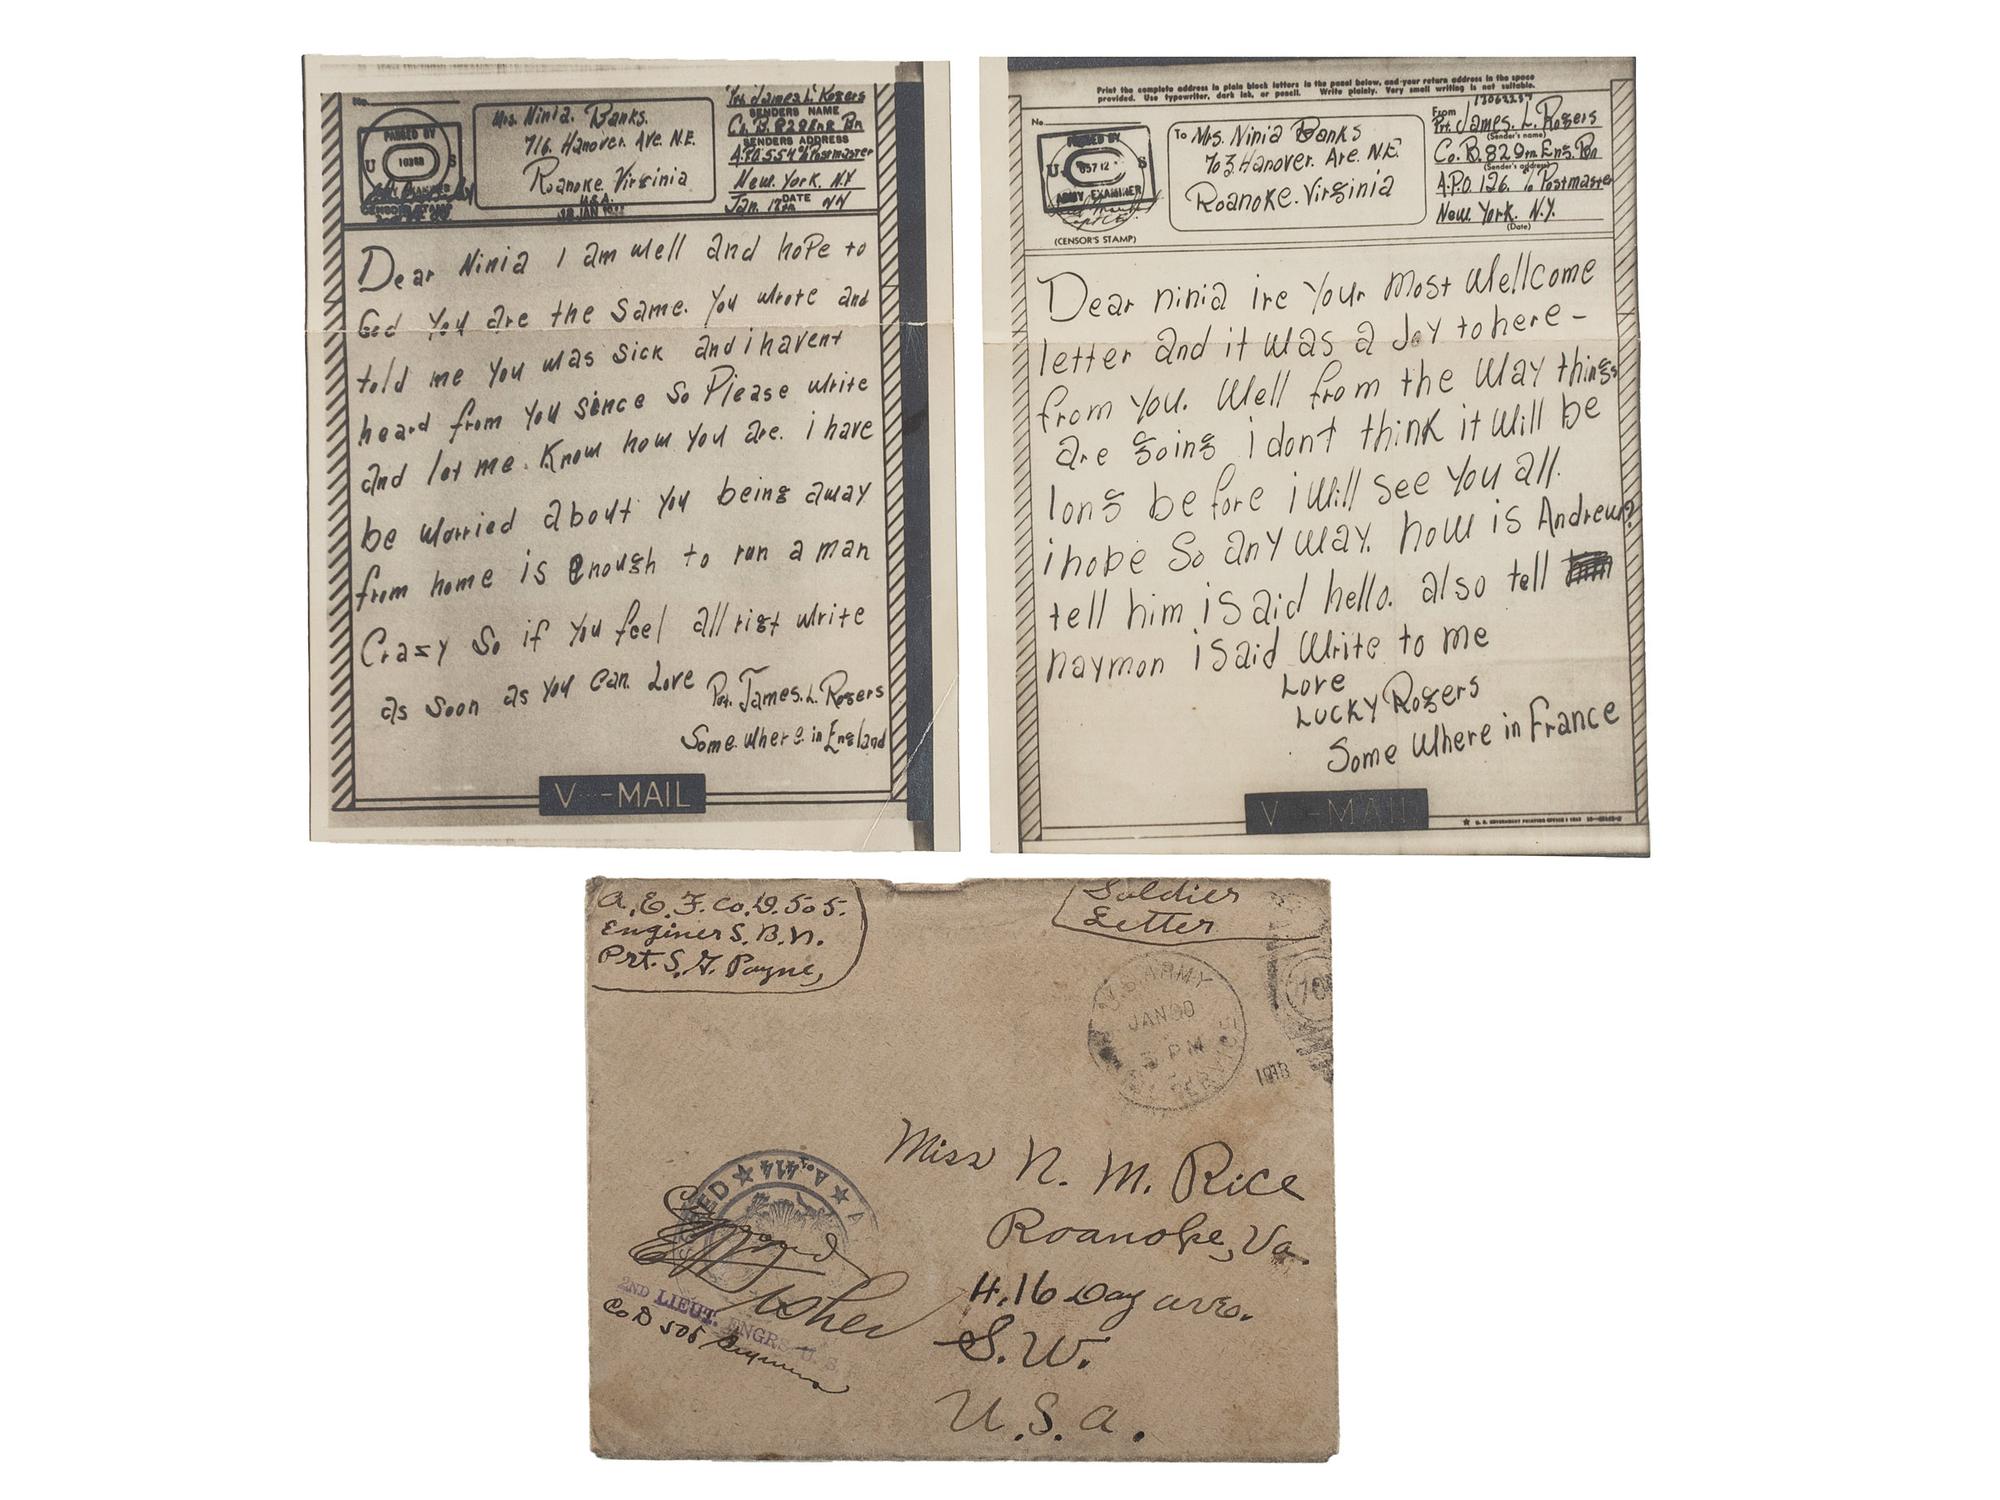 No.
PASSED BY
U S
ARMY EXAMINER
CENSOR'S STAMP
Mrs. Ninia. Banks.
716. Hanover. Ave. N.E.
Roanoke. Virginia
U.S.A.
Pvt. James. L. Rogers
SENDERS NAME
Co. B. 829 Eng Bn
SENDERS ADDRESS
A.P.O. 554 % Postmaster
New. York. N.Y
Jan. 17 DATE 44
Dear Ninia I am well and hope to
God you are the same. You wrote and
told me you was sick and i havent
heard from you since so Please write
and let me. Know how you are. i have
be worried about you being away
from home is enough to run a man
Crazy so if you feel all rigt write
as soon as you can Love Pvt. James. L. Rogers
Some. where. in England
V---MAIL
Print the complete address in plain block letters in the panel below, and your return address in the space
provided. Use typewriter, dark ink, or pencil. Write plainly. Very small writing is not suitable.
No.
PASSED BY
U.S
ARMY EXAMINER
(CENSOR'S STAMP)
To Mrs. Ninia Banks
703 Hanover. Ave. N.E.
Roanoke. Virginia
From
Pvt. James. L. Rogers
(Sender's name)
Co. B. 829th Eng. Bn
(Sender's address)
A.P.O. 126. % Postmaster
New. York. N.Y.
(Date)
Dear ninia ire Your Most Wellcome
letter and it was a Joy to here -
from You. Well from the Way things
are going i dont think it Will be
long before i Will see You all.
i hope So anyway. how is Andrew?
tell him i said hello. also tell
haymon i said Write to me
Love
LUCKY Rogers
Some Where in France
V---MAIL
U. S. GOVERNMENT PRINTING OFFICE : 1943
A. E. F. Co. D. 505.
Enginer S. B. N.
Prt. S. G. Payne,
Soldier
Letter
U.S. ARMY
JAN 30
5 PM
SERVICE
1918
Miss N. M. Rice
Roanoke, Va.
416 Day ave.
S. W.
U.S.a.
A. 414
Censored
Fisher
2ND LIEUT. ENGRS. U. S.
Co D 505 Engineers